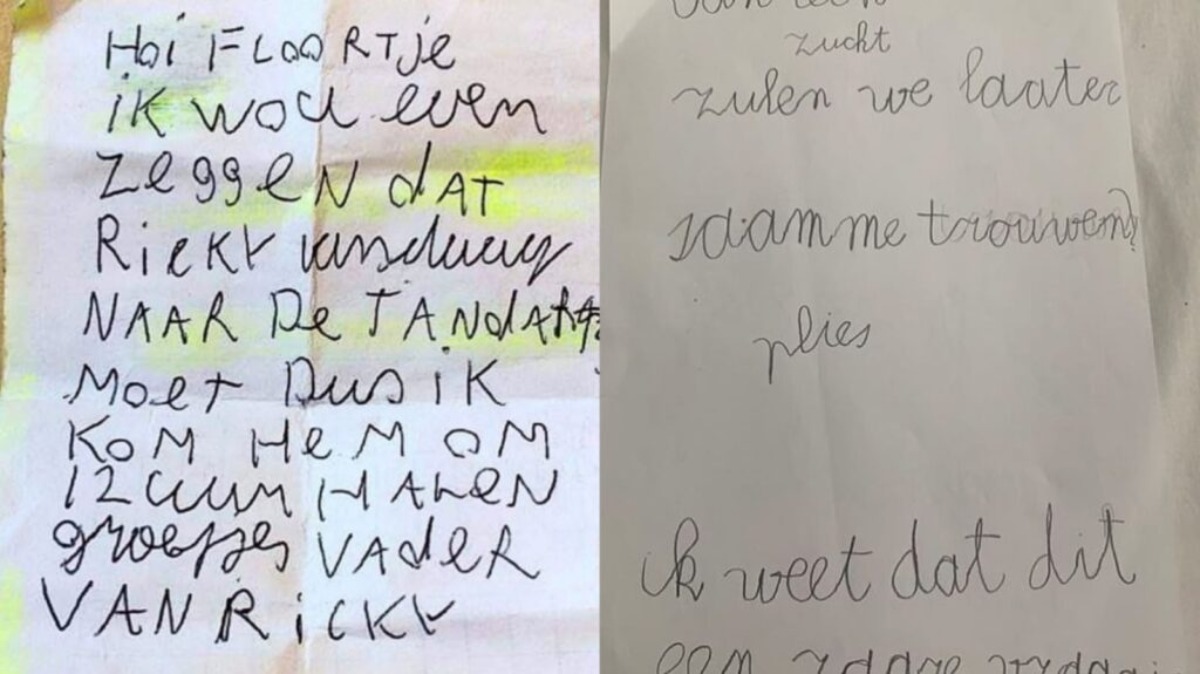 Hoi FLOORTje
iK wou even
zeggeN dAT
RieKY vandaag
NAAR De TANdARts
Moet Dus iK
KOM HeM OM
12 uur HALEN
groetjes VAdeR
VAN RiCKY
zucht
zulen we laater
saamme trouwem?
plies
ik weet dat dit
een